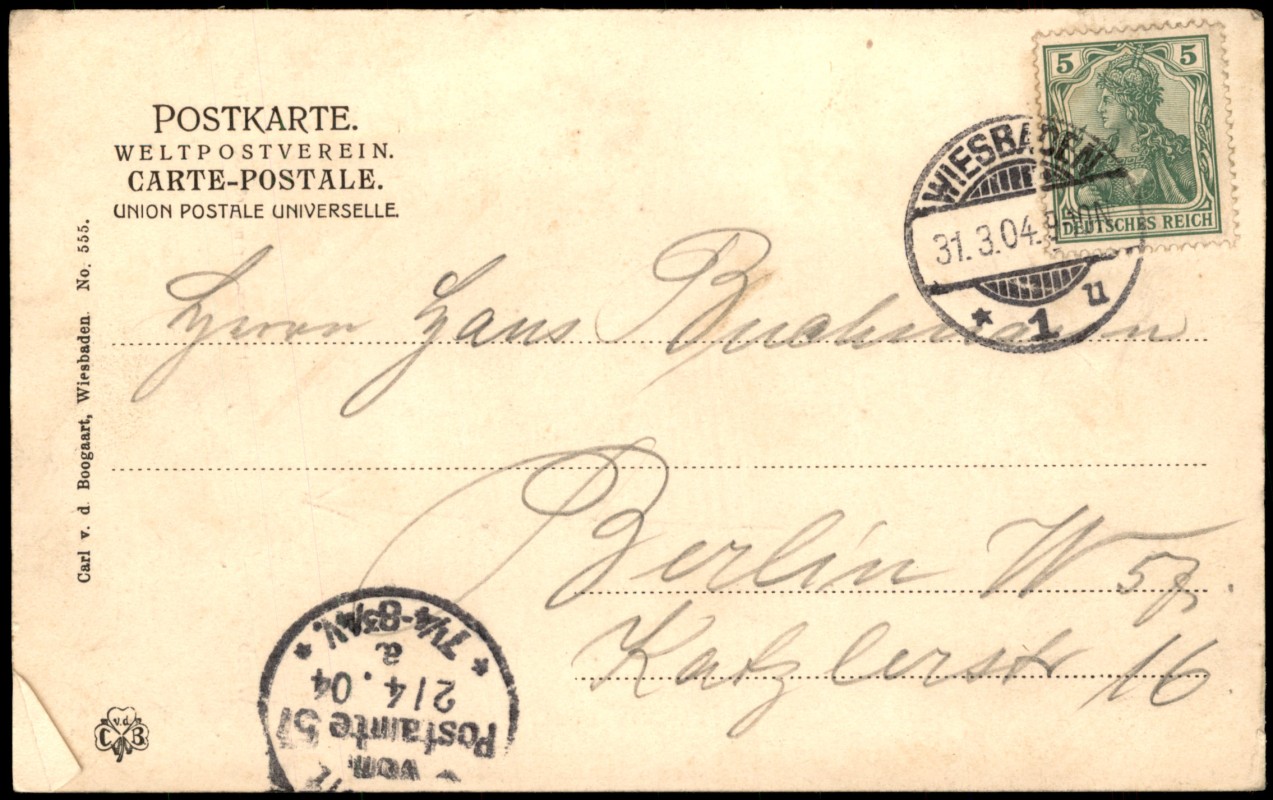 POSTKARTE.
WELTPOSTVEREIN.
CARTE-POSTALE.
UNION POSTALE UNIVERSELLE.
5 5
DEUTSCHES REICH
WIESBADEN
31.3.04.
* 1 u
Carl v. d. Boogaart, Wiesbaden. No. 555.
Herrn Hans Buchmann
Berlin W 57.
Katzlerstr 16
* 7¼-8¾V. *
a
2/4.04
Postamte 57
vom
v.d.
C B